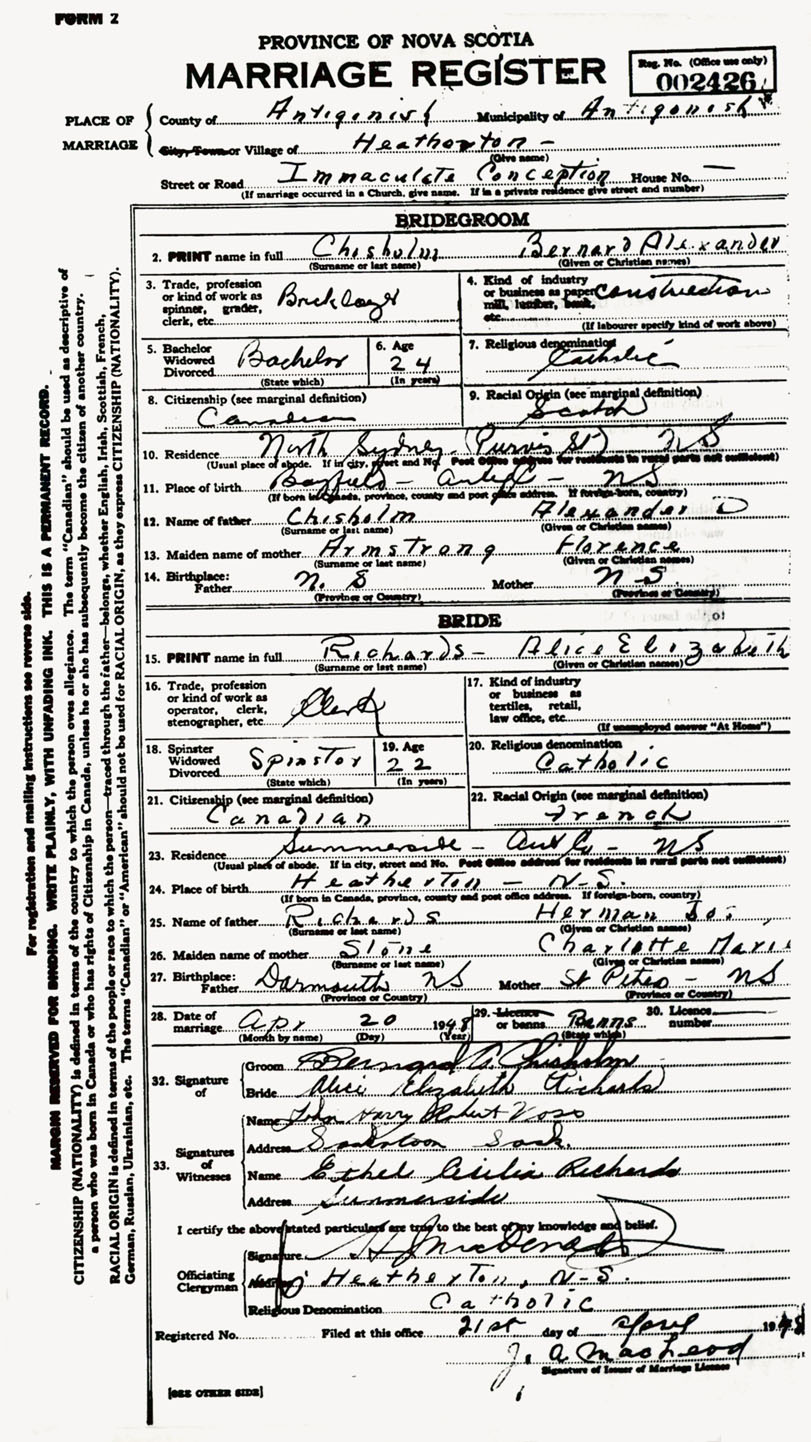 FORM 2
PROVINCE OF NOVA SCOTIA
MARRIAGE REGISTER
Reg. No. (Office use only)
002426
PLACE OF MARRIAGE
County of Antigonish Municipality of Antigonish
City, Town or Village of Heatherton -
(Give name)
Street or Road Immaculate Conception House No. —
(If marriage occurred in a Church, give name. If in a private residence give street and number)
BRIDEGROOM
2. PRINT name in full Chisholm Bernard Alexander
(Surname or last name) (Given or Christian names)
3. Trade, profession or kind of work as spinner, grader, clerk, etc. Bricklayer
4. Kind of industry or business as paper mill, lumber, bank, etc. Construction
(If labourer specify kind of work above)
5. Bachelor Widowed Divorced Bachelor
(State which)
6. Age 24
(In years)
7. Religious denomination Catholic
8. Citizenship (see marginal definition)
Canadian
9. Racial Origin (see marginal definition)
Scotch
10. Residence North Sydney (Purvis St) NS
(Usual place of abode. If in city, street and No. Post Office address for residents in rural parts not sufficient)
11. Place of birth Bayfield - - NS
(If born in Canada, province, county and post office address. If foreign-born, country)
12. Name of father Chisholm Alexander D
(Surname or last name) (Given or Christian names)
13. Maiden name of mother Armstrong Florence
(Surname or last name) (Given or Christian names)
14. Birthplace: Father N. S Mother N S.
(Province or Country) (Province or Country)
BRIDE
15. PRINT name in full Richards - Alice Elizabeth
(Surname or last name) (Given or Christian names)
16. Trade, profession or kind of work as operator, clerk, stenographer, etc. Clerk
17. Kind of industry or business as textiles, retail, law office, etc.
(If unemployed answer "At Home")
18. Spinster Widowed Divorced Spinster
(State which)
19. Age 22
(In years)
20. Religious denomination
Catholic
21. Citizenship (see marginal definition)
Canadian
22. Racial Origin (see marginal definition)
French
23. Residence Summerside - - NS
(Usual place of abode. If in city, street and No. Post Office address for residents in rural parts not sufficient)
24. Place of birth Heatherton - N.S.
(If born in Canada, province, county and post office address. If foreign-born, country)
25. Name of father Richards Herman
(Surname or last name) (Given or Christian names)
26. Maiden name of mother Slone Charlotte Marie
(Surname or last name) (Given or Christian names)
27. Birthplace: Father Darmouth NS Mother St Peters - NS
(Province or Country) (Province or Country)
28. Date of marriage Apr 20 1948
(Month by name) (Day) (Year)
29. Licence or banns Banns
(State which)
30. Licence number
32. Signature of
Groom Bernard A. Chisholm
Bride Alice Elizabeth Richards
33. Signatures of Witnesses
Name John Harry Robert
Address Saskatoon Sask.
Name Ethel Cecilia Richards
Address Summerside
I certify the above stated particulars are true to the best of my knowledge and belief.
Officiating Clergyman
Signature H J MacDonald
Address Heatherton, N.S.
Religious Denomination Catholic
Registered No. Filed at this office 21st day of April 1948
J. A MacLeod
Signature of Issuer of Marriage Licence
[SEE OTHER SIDE]
For registration and mailing instructions see reverse side.
MARGIN RESERVED FOR BINDING. WRITE PLAINLY, WITH UNFADING INK. THIS IS A PERMANENT RECORD.
CITIZENSHIP (NATIONALITY) is defined in terms of the country to which the person owes allegiance. The term "Canadian" should be used as descriptive of
a person who was born in Canada or who has rights of Citizenship in Canada, unless he or she has subsequently become the citizen of another country.
RACIAL ORIGIN is defined in terms of the people or race to which the person—traced through the father—belongs, whether English, Irish, Scottish, French,
German, Russian, Ukrainian, etc. The terms "Canadian" or "American" should not be used for RACIAL ORIGIN, as they express CITIZENSHIP (NATIONALITY).